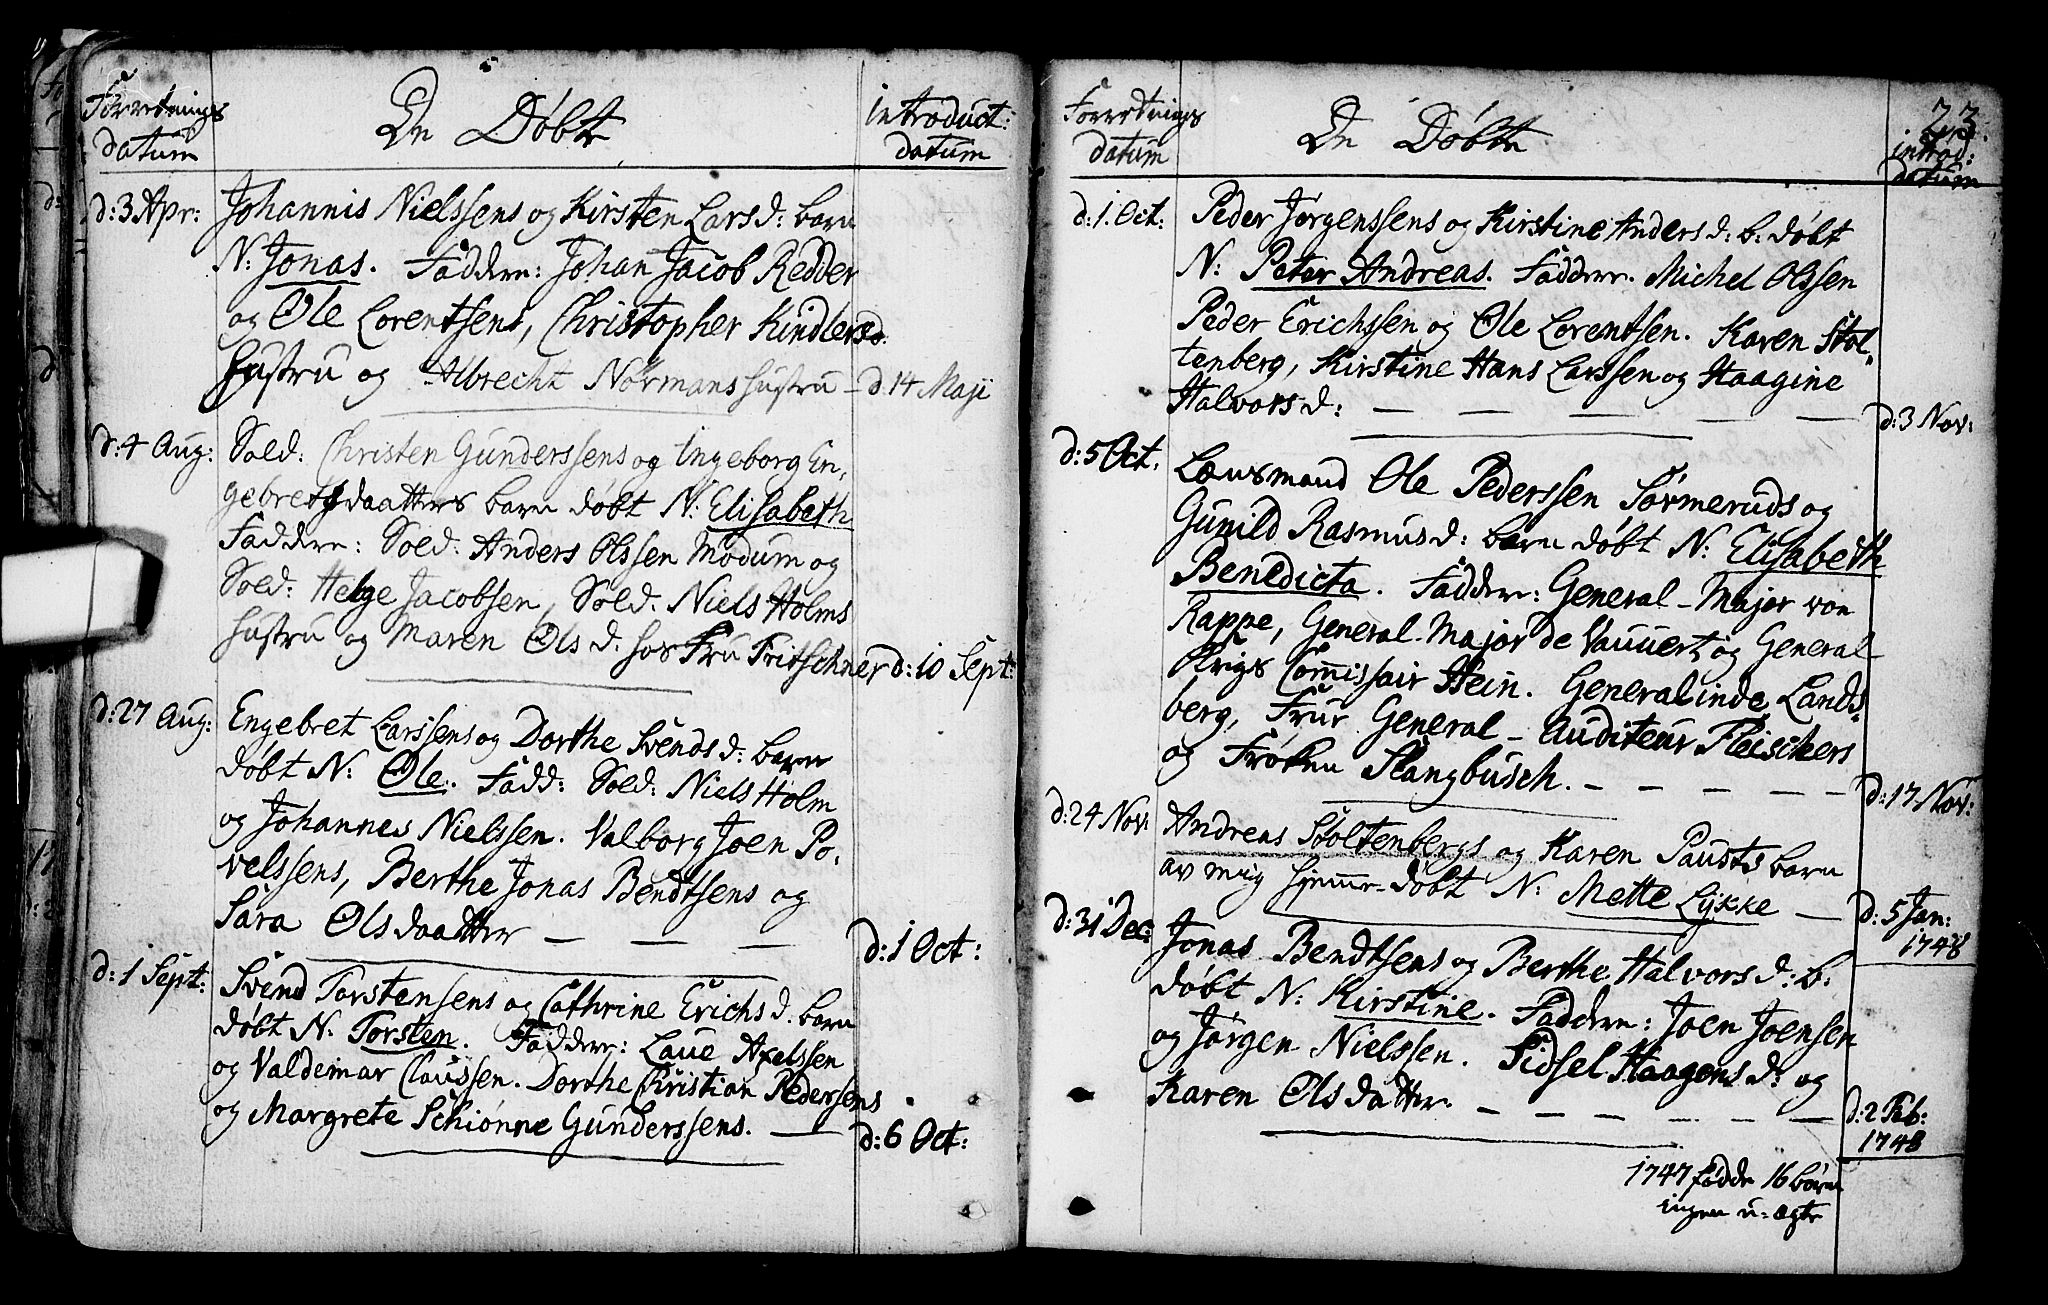 Forretnings
datum
De Døbte
introduct:
datum
d: 3 Apr:
Johannis Nielssens og Kirsten Lars d: barn
N: Jonas. Faddere: Johan Jacob Redder
og Ole Lorentsens, Christopher Kindlers
hustru og Albrecht Normans hustru – d: 14 Maji
d: 4 Aug:
Sold: Christen Gunderssens og Ingeborg En,
gebretsdaatters barn døbt N: Elisabeth
Faddere: Sold: Anders Olssen Modum og
Sold: Helge Jacobsen, Sold. Niels Holms
hustru og Maren Ols d. hos Fru Fritschner d: 10 Sept:
d: 27 Aug:
Engebret Larssens og Dorthe Svends d: barn
døbt N: Ole. Fadd: Sold: Niels Holm
og Johannes Nielssen. Valborg Joen Po,
velssens, Berthe Jonas Bendtsens og
Sara Olsdaatter — — — d: 1 Oct:
d: 1 Sept:
Svend Torstensens og Cathrine Erichs d. barn
døbt N: Torsten. Faddere: Laue Axelssen
og Valdemar Claussen. Dorthe Christian Pedersens
og Margrete Schiønne Gunderssens. — d: 6 Oct:
23.
Forretnings
datum
De Døbte
introd:
datum
d: 1. Oct:
Peder Jørgenssens og Kirstine Anders d: b: døbt
N: Peter Andreas. Faddere. Michel Olssen
Peder Erichssen og Ole Lorentsen. Karen Stol„
tenberg, Kirstine Hans Larssen og Haagine
Halvors d: — — — — — d: 3 Nov:
d: 5 Oct.
Lænsmand Ole Pederssen Sørmeruds og
Gunild Rasmus d: barn døbt N: Elisabeth
Benedicta. Faddere: General-Major von
Rappe, General-Major de Vauuert og General
Krigs Commissair Hein. Generalinde Lands„
berg, Frue General-Auditeur Fleischers
og Frøken Stangbusch. — — — — — d: 17 Nov:
d: 24 Nov:
Andreas Stoltenbergs og Karen Pausts barn
av mig hjemme-døbt N: Mette Lykke — d: 5 Jan:
1748
d: 31 Dec:
Jonas Bendtsens og Berthe Halvors d: b:
døbt N: Kirstine. Faddere: Joen Joensen
og Jørgen Nielssen. Sidsel Haagens d: og
Karen Olsdatter. — — — — — — d: 2 Feb:
1748
1747 fødde 16 børn
ingen u-ægte